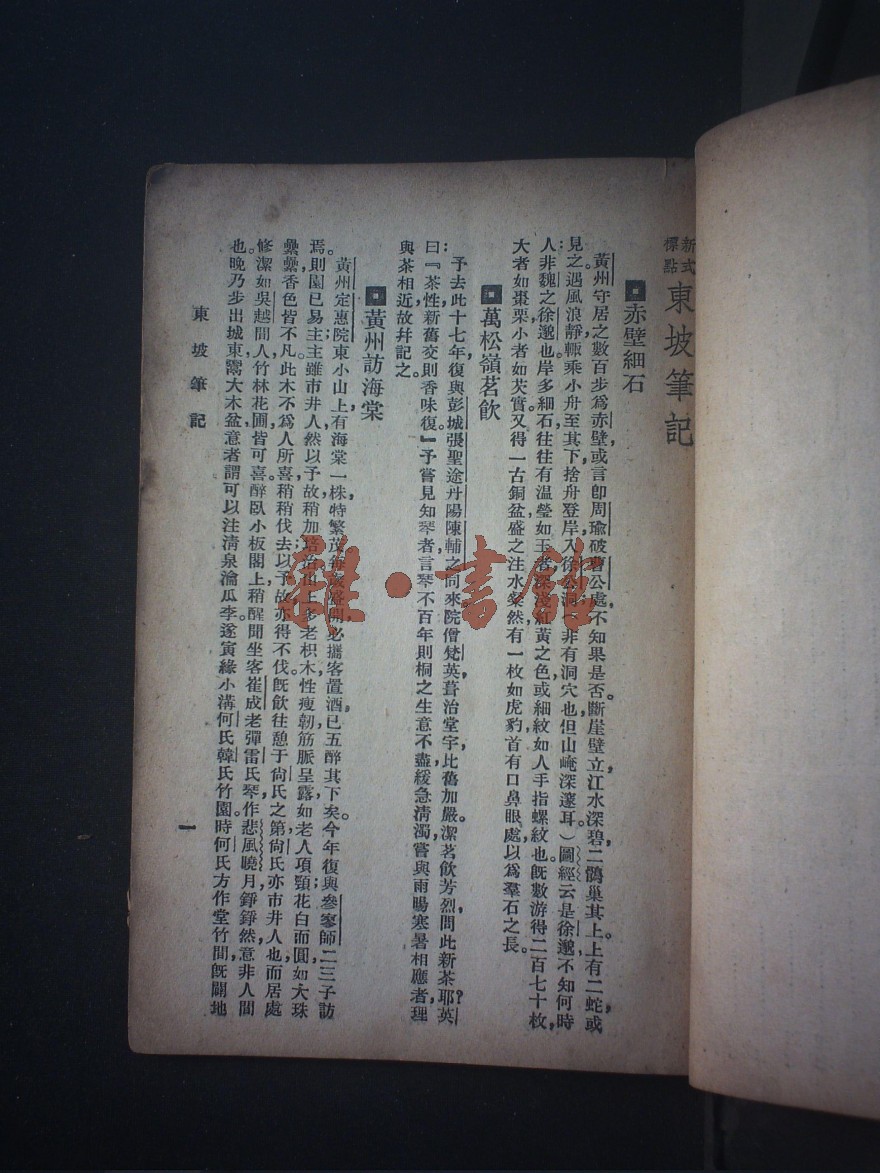 新式標點 東坡筆記
赤壁細石
黃州守居之數百步爲赤壁，或言卽周瑜破曹公處，不知果是否。斷崖壁立，江水深碧，二鶻巢其上。上有二蛇，或
見之。遇風浪靜，輒乘小舟至其下，捨舟登岸，入徐公洞。（非有洞穴也，但山崦深邃耳）圖經云：是徐邈，不知何時
人，非魏之徐邈也。岸多細石，往往有溫瑩如玉者，深淺紅黃之色，或細紋如人手指螺紋也。旣數游，得二百七十枚，
大者如棗栗，小者如芡實，又得一古銅盆盛之，注水粲然。有一枚如虎豹首，有口鼻眼處，以爲羣石之長。
萬松嶺茗飮
予去此十七年，復與彭城張聖途丹陽陳輔之同來，院僧梵英，葺治堂宇，比舊加嚴。潔茗飮芳烈，問此新茶耶？英
曰：『茶性新舊交，則香味復。』予嘗見知琴者，言琴不百年，則桐之生意不盡，緩急淸濁，嘗與雨暘寒暑相應者，理
與茶相近，故幷記之。
黃州訪海棠
黃州定惠院東小山上，有海棠一株，特繁茂，每歲盛開，必攜客置酒，已五醉其下矣。今年復與參寥師二三子訪
焉，則園已易主；主雖市井人，然以予故，稍加培治。山上多老枳木，性瘦韌，筋脈呈露，如老人項頸；花白而圓，如大珠
纍纍，香色皆不凡。此木不爲人所喜，稍稍伐去，以予故，亦得不伐。旣飮，往憩于尙氏之第；尙氏亦市井人也，而居處
修潔，如吳越間人，竹林花圃皆可喜。醉臥小板閣上，稍醒，聞坐客崔成老彈雷氏琴，作悲風曉月，錚錚然，意非人間
也。晚乃步出城東，鬻大木盆，意者謂可以注淸泉，瀹瓜李。遂夤緣小溝，何氏韓氏竹園。時何氏方作堂竹間，旣闢地
東坡筆記
一
雜·書館